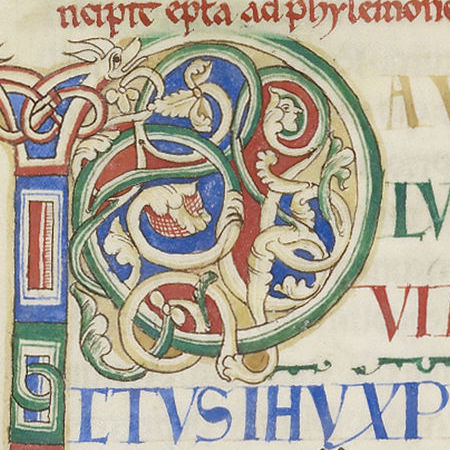 ncipit epta ad phylemone
P AV
LV
VI
CTVS IHV XP